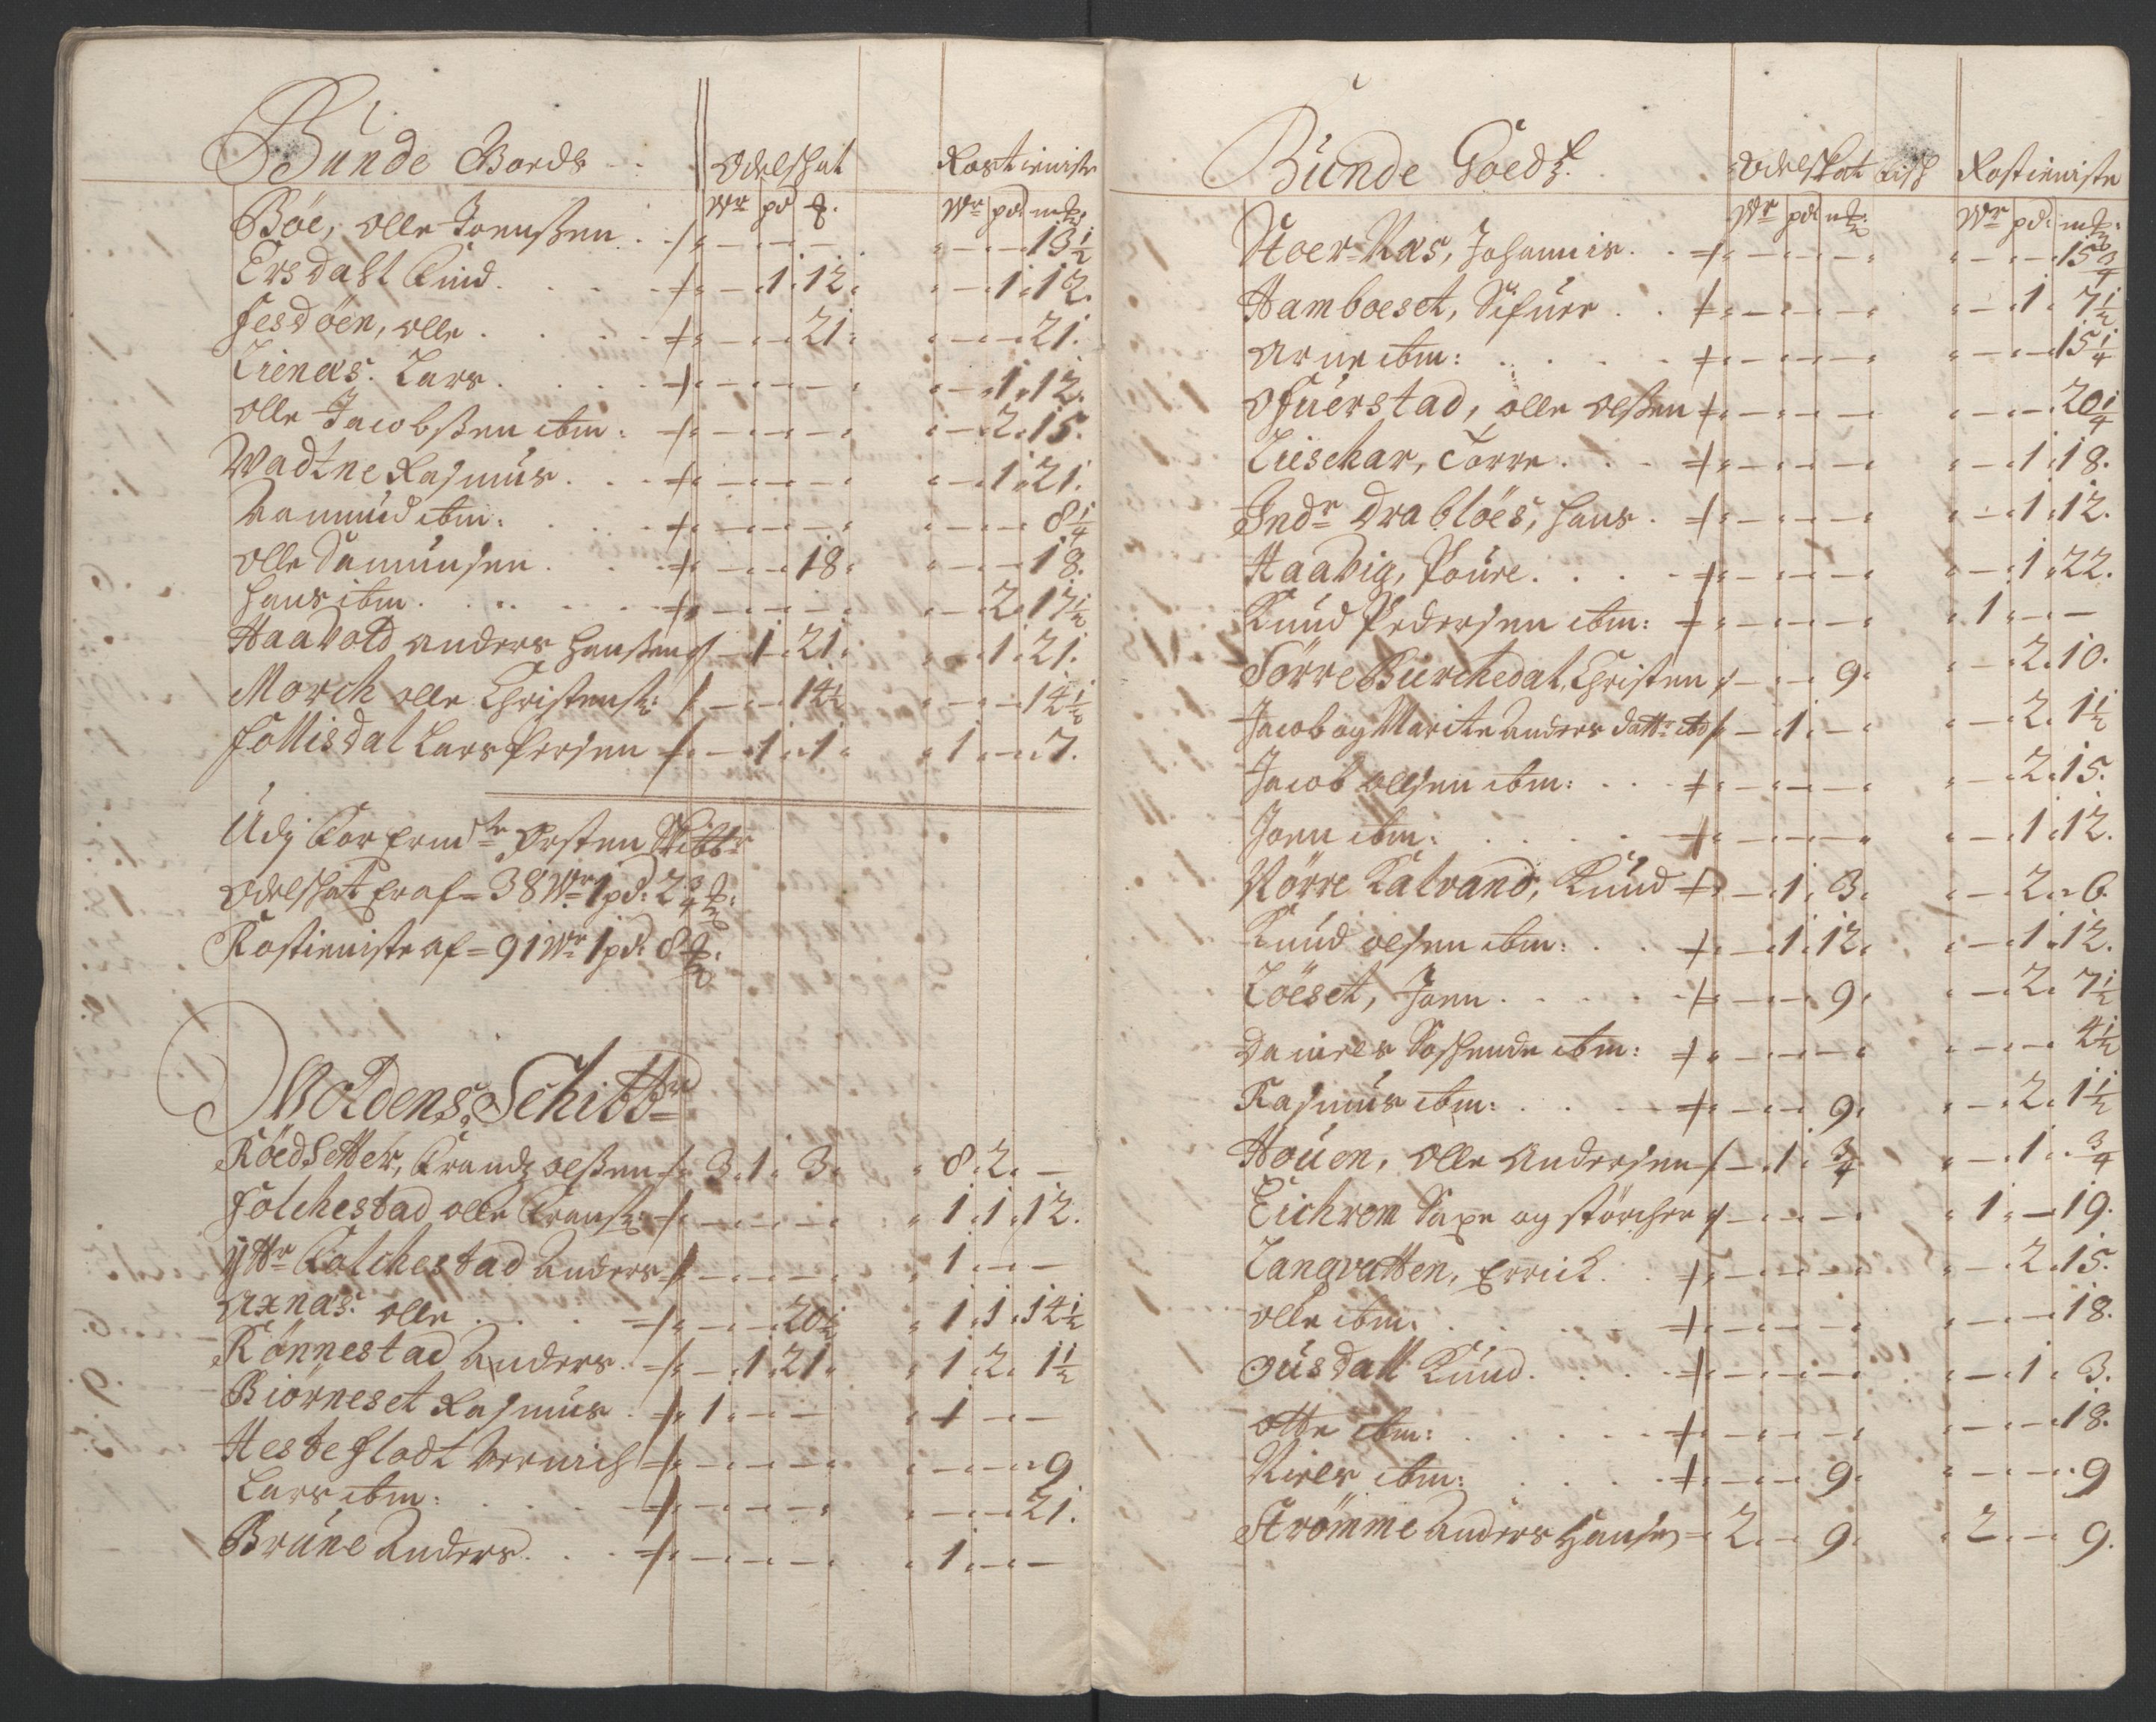 Bunde Goeds Odelskat Rostieniste
Wr pd ℔. Wr pd: m℔:
Böe, Olle Jonußen . . - - - - - - 13½
Ersdahl Knud . . . . - 1. 12. - 1. 12.
Jesdöen, Olle . . . - - 21. - - 21.
Lienes. Lars . . . - - - - 1. 12.
Olle Jacobßen ibm: - - - - 2. 15.
Wadtne Rasmus . . . - - - - 1. 21.
Aamund ibm: . . . - - - - - 8¼
Olle Samunsen . . . - - 18. - - 18.
Hans ibm . . . . - - - - 2. 17½
Haavold Anders Hanßen - 1. 21. - 1. 21.
Morch Olle Christens: - - 14½ - - 14½
Follisdal Lars Persen - 1. 1. 1. - 7.
Udj forermte Ørsten Skibbr
Odelskat er af = 38 Wr 1 pd: 2¾ ℔:
Rostieniste af = 91 Wr 1 pd: 8 ℔:
Woldens Schibbr
Röedsetter, Trandz Olßen 3. 1. 3. 8. 2. -
Folchestad Olle Trans: - - - 1. 1. 12.
Yttr Folchestad Anders - - - 1. - -
Axnas. Olle . . . - - 20½ 1. 1. 14½
Rönnestad Anders . - 1. 21. 1. 2. 1½
Biörneset Rasmus . 1. - - 1 - -
Hestefladt - - - - - 9
Lars ibm: . . . - - - - - 21.
Brune Anders . . . - - - 1. - -
Bunde Goedz. Odelskat Rostieniste
Wr pd m℔: Wr pd: m℔:
Stoer-Nas, Johannis . . - - - - - 15¾
Hamboeset, Sifuer . . - - - - 1. 7½
Arne ibm: . . . . - - - - - 15¼
Ofuerstad, Olle Olßen - - - - - 20¼
Lieschar, Torre . . . - - - - 1. 18.
Indr Drablöes, Hans . - - - - 1. 12.
Haavig, Poure . . . . - - - - 1. 22.
Knud Pedersen ibm: - - - 1. - -
Sörre Burchedal, Christen - - 9. - 2. 10.
Jacob og Marite Andersdattr ib - 1. - - 2. 1½
Jacob Olsen ibm: . . . - - - - 2. 15.
Jonn ibm: . . . . - - - - 1. 12.
Nörre Kalvand, Knud - 1. 3. - 2. 6.
Knud Olsen ibm: . . - 1. 12. - 1. 12.
Löeset, Jonn . . . . . - - 9. - 2. 7½
Daniels Söschende ibm: - - - - - 4½
Rasmus ibm: . . . - - 9. - 2. 1½
Houen, Olle Andersen - 1. ¾ - 1. ¾
Eichrem Saxe og - - - 1. - 19.
Langvatten, Errick . . - - - - 2. 15.
Olle ibm. . . . . . - - - - - 18.
Ousdall Knud . . . . - - - - 1. 3.
Otte ibm: . . . . . - - - - - 18.
Niels ibm: . . . . - - 9. - - 9
Strömme Anders Hansen 2. - 9. 2. - 9.